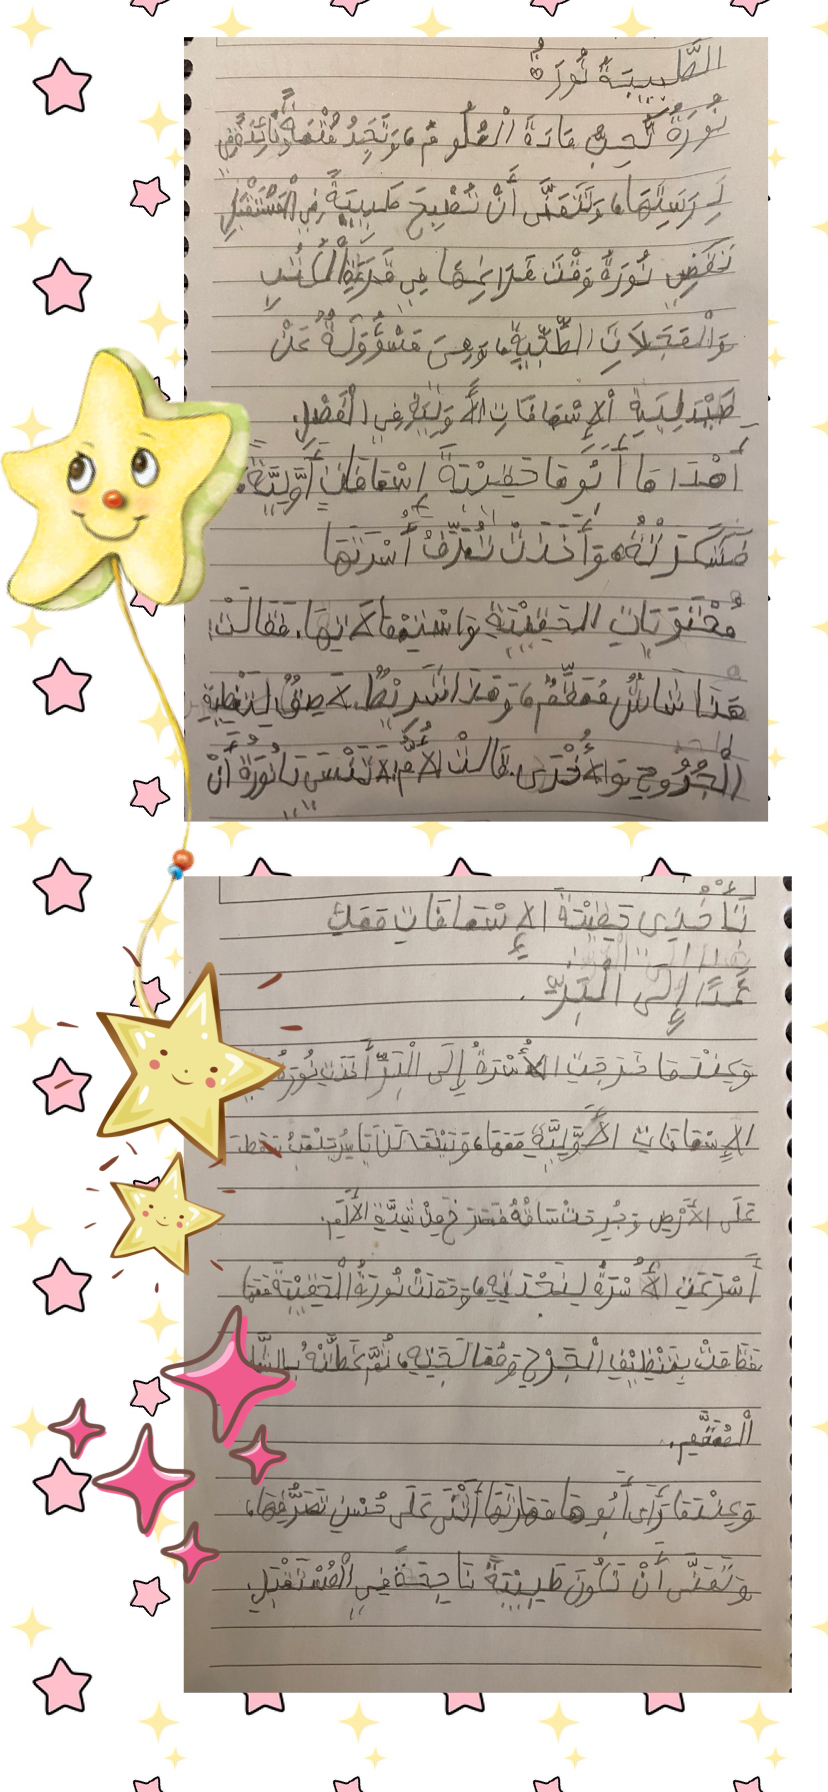 الطَّبِيبَةُ نُورَةُ
نُورَةُ تُحِبُّ مَادَةَ الْعُلُومِ، وَتَجِدُ مُتْعَةً وَفَائِدَةً فِي
دِرَاسَتِهَا، وَتَتَمَنَّى أَنْ تُصْبِحَ طَبِيبَةً فِي الْمُسْتَقْبَلِ
تَقْضِي نُورَةُ وَقْتَ فَرَاغِهَا فِي قِرَاءَةِ الْكُتُبِ
وَالْمَجَلَاتِ الطِّبِّيَّةِ، وَهِيَ مَسْؤُولَةٌ عَنْ
صَيْدَلِيَةِ الْإِسْعَافَاتِ الأَوَلِيَّةِ فِي الْفَصْلِ.
أَهْدَاهَا أَبُوهَا حَقِيبَةَ إِسْعَافَاتٍ أَوَّلِيَّةٍ،
فَشَكَرَتْهُ، وَأَخَذَتْ تُعَرِّفُ أُسْرَتَهَا
مُحْتَوَيَاتِ الحَقِيبَةِ وَاسْتِعْمَالَاتِهَا. فَقَالَتْ:
هَذَا شَاشٌ مُعَقَّمٌ، وَهَذَا شَرِيطٌ لَاصِقٌ لِتَغْطِيَةِ
الْجُرُوحِ وَالأُخْرَى. قَالَتْ الأُمُّ: لَا تَنْسَيْ يَا نُورَةُ أَنْ
تَأْخُذِي حَقِيبَةَ الإِسْعَافَاتِ مَعَكِ
غَدًا إِلَى الْبَرِّ.
وَعِنْدَمَا خَرَجَتِ الأُسْرَةُ إِلَى الْبَرِّ أَخَذَتْ نُورَةُ
الإِسْعَافَاتِ الأَوَّلِيَّةِ مَعَهَا، وَبَيْنَمَا كَانَ يَاسِرٌ يَلْعَبُ سَقَطَ
عَلَى الأَرْضِ وَجُرِحَتْ سَاقُهُ فَصَرَخَ مِنْ شِدَّةِ الأَلَمِ.
أَسْرَعَتِ الأُسْرَةُ لِنَجْدَتِهِ، وَحَمَلَتْ نُورَةُ الْحَقِيبَةَ مَعَهَا
فَقَامَتْ بِتَنْظِيفِ الْجُرْحِ وَمُعَالَجَتِهِ، ثُمَّ غَطَّتْهُ بِالشَّاشِ
الْمُعَقَّمِ.
وَعِنْدَمَا رَأَى أَبُوهَا مَهَارَتَهَا أَثْنَى عَلَى حُسْنِ تَصَرُّفِهَا،
وَتَمَنَّى أَنْ تَكُونَ طَبِيبَةً نَاجِحَةً فِي الْمُسْتَقْبَلِ.